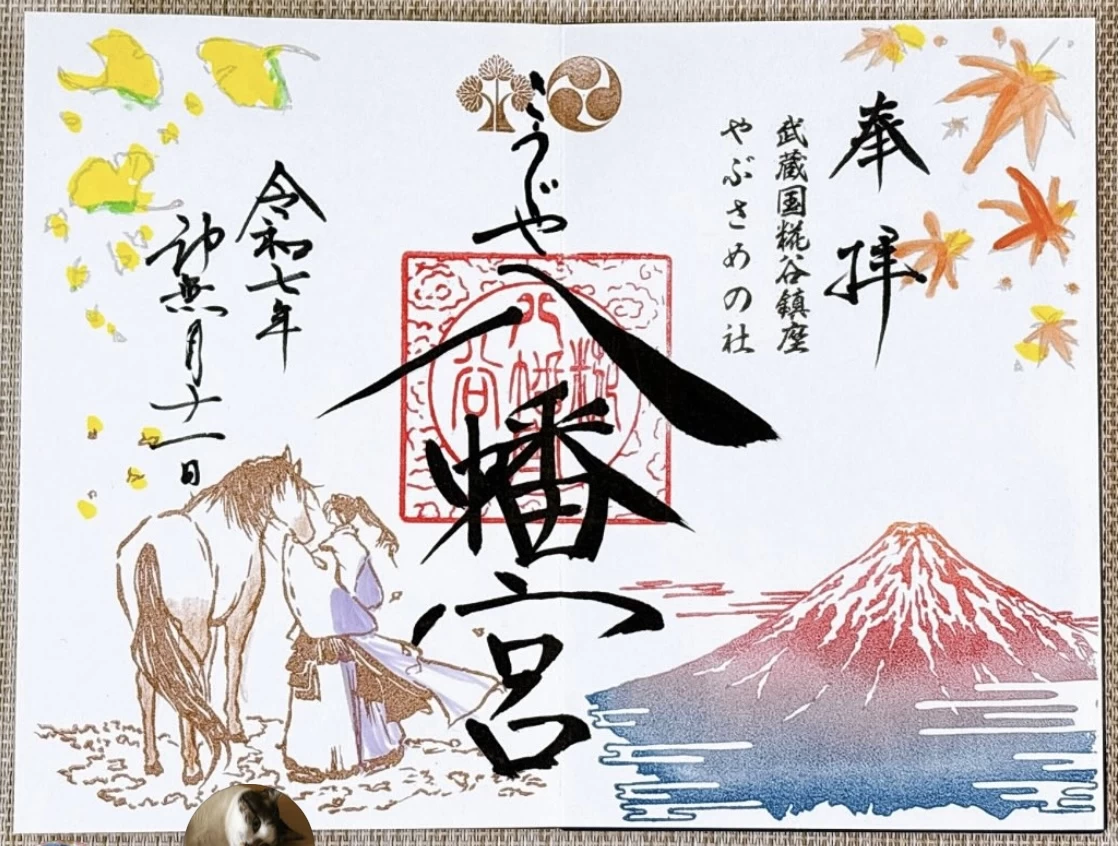 奉拝
武蔵国糀谷鎮座
やぶさめの社
こうじや
八幡宮
糀
八幡
谷
令和七年
神無月十一日